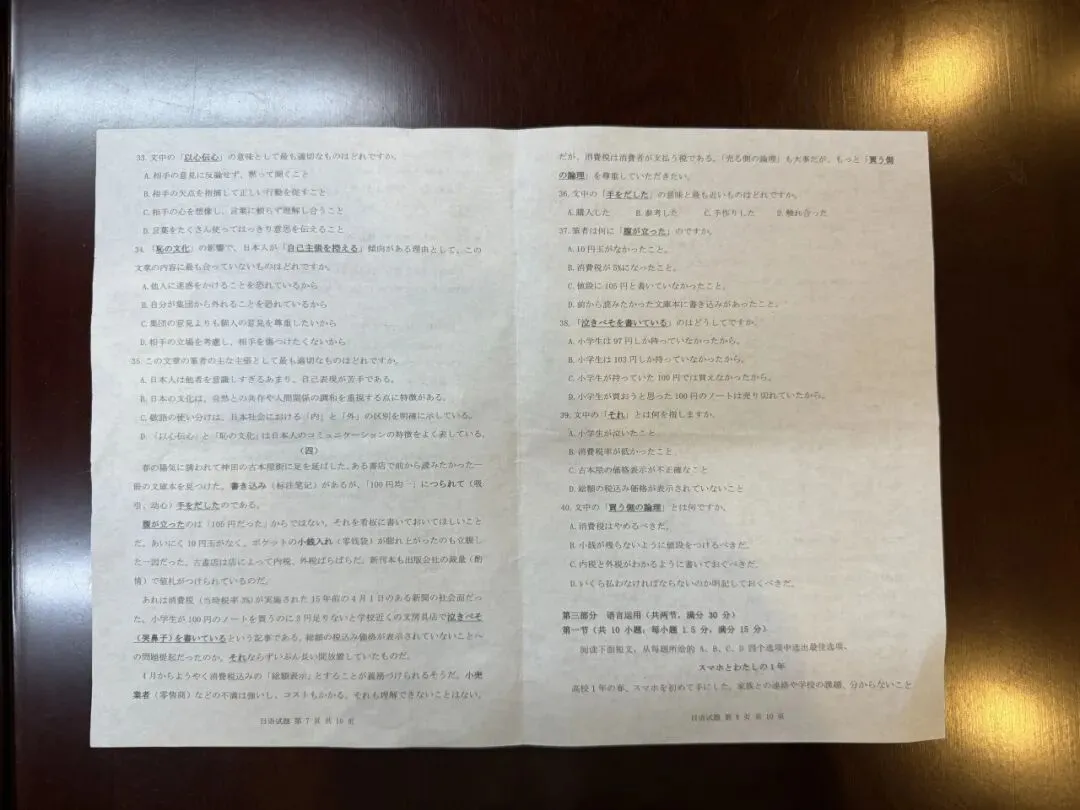 33. 文中の「以心伝心」の意味として最も適切なものはどれですか。
A. 相手の意見に反論せず、黙って聞くこと
B. 相手の欠点を指摘して正しい行動を促すこと
C. 相手の心を想像し、言葉に頼らず理解し合うこと
D. 言葉をたくさん使ってはっきり意思を伝えること
34. 「恥の文化」の影響で、日本人が「自己主張を控える」傾向がある理由として、この
文章の内容に最も合っていないものはどれですか。
A. 他人に迷惑をかけることを恐れているから
B. 自分が集団から外れることを恐れているから
C. 集団の意見よりも個人の意見を尊重したいから
D. 相手の立場を考慮し、相手を傷つけたくないから
35. この文章の筆者の主な主張として最も適切なものはどれですか。
A. 日本人は他者を意識しすぎるあまり、自己表現が苦手である。
B. 日本の文化は、自然との共存や人間関係の調和を重視する点に特徴がある。
C. 敬語の使い分けは、日本社会における「内」と「外」の区別を明確に示している。
D. 「以心伝心」と「恥の文化」は日本人のコミュニケーションの特徴をよく表している。
(四)
春の陽気に誘われて神田の古本屋街に足を延ばした。ある書店で前から読みたかった一
冊の文庫本を見つけた。書き込み（标注笔记）があるが、「100 円均一」につられて（吸
引、动心）手をだしたのである。
腹が立ったのは「105 円だった」からではない。それを看板に書いておいてほしいこと
だ。あいにく 10 円玉がなく、ポケットの小銭入れ（零钱袋）が膨れ上がったのも立腹し
た一因だった。古書店は店によって内税、外税ばらばらだ。新刊本も出版会社の裁量（酌
情）で値札がつけられているのだ。
あれは消費税（当時税率 3%）が実施された 15 年前の 4 月 1 日のある新聞の社会面だっ
た。小学生が 100 円のノートを買うのに 3 円足りないと学校近くの文房具店で泣きべそ
（哭鼻子）を書いているという記事である。総額の税込み価格が表示されていないことへ
の問題提起だったのか。それならずいぶん長い間放置していたものだ。
4 月からようやく消費税込みの「総額表示」とすることが義務づけられるそうだ。小売
業者（零售商）などの不満は強いし、コストもかかる。それも理解できないことはない。
日语试题 第 7 页 共 10 页
だが、消費税は消費者が支払う税である。「売る側の論理」も大事だが、もっと「買う側
の論理」を尊重していただきたい。
36. 文中の「手をだした」の意味と最も近いものはどれですか。
A. 購入した B. 参考した C. 手作りした D. 触れ合った
37. 筆者は何に「腹が立った」のですか。
A. 10 円玉がなかったこと。
B. 消費税が 5%になったこと。
C. 値段に 105 円と書いていなかったこと。
D. 前から読みたかった文庫本に書き込みがあったこと。
38. 「泣きべそを書いている」のはどうしてですか。
A. 小学生は 97 円しか持っていなかったから。
B. 小学生は 103 円しか持っていなかったから。
C. 小学生が持っていた 100 円では買えなかったから。
D. 小学生が買おうと思った 100 円のノートは売り切れていたから。
39. 文中の「それ」とは何を指しますか。
A. 小学生が泣いたこと
B. 消費税率が低かったこと
C. 古本屋の価格表示が不正確なこと
D. 総額の税込み価格が表示されていないこと
40. 文中の「買う側の論理」とは何ですか。
A. 消費税はやめるべきだ。
B. 小銭が残らないように値段をつけるべきだ。
C. 内税と外税がわかるように書いておくべきだ。
D. いくら払わなければならないのか明記しておくべきだ。
第三部分 语言运用（共两节，满分 30 分）
第一节（共 10 小题；每小题 1.5 分，满分 15 分）
阅读下面短文，从每题所给的 A、B、C、D 四个选项中选出最佳选项。
スマホとわたしの 1 年
高校 1 年の春、スマホを初めて手にした。家族との連絡や学校の課題、分からないこと
日语试题 第 8 页 共 10 页